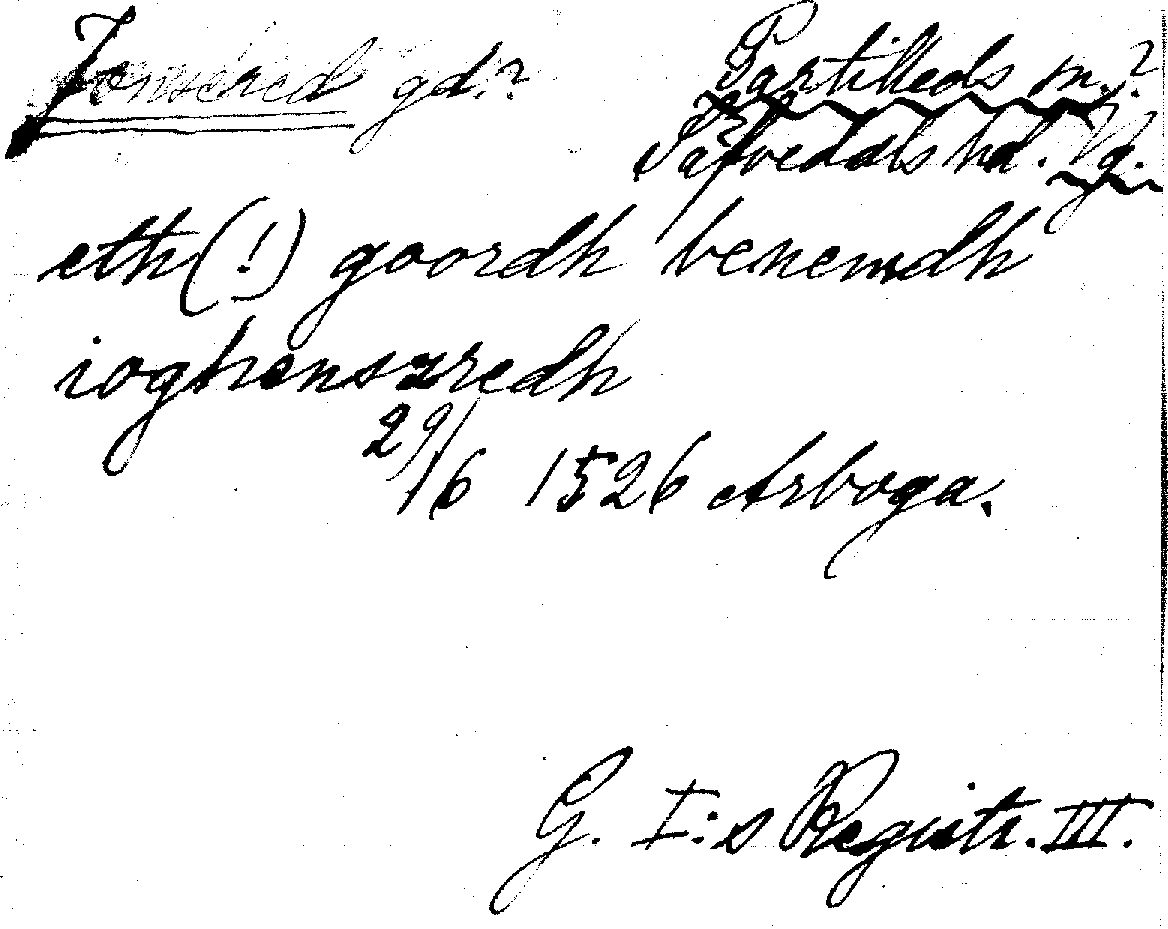 Jonsered gd.?
Partilleds m.?
Säfvedals hd. Vg.
eth(!) goordh benemdh
ioghenszredh
29/6 1526 Arboga.
G. I:s Registr. III.